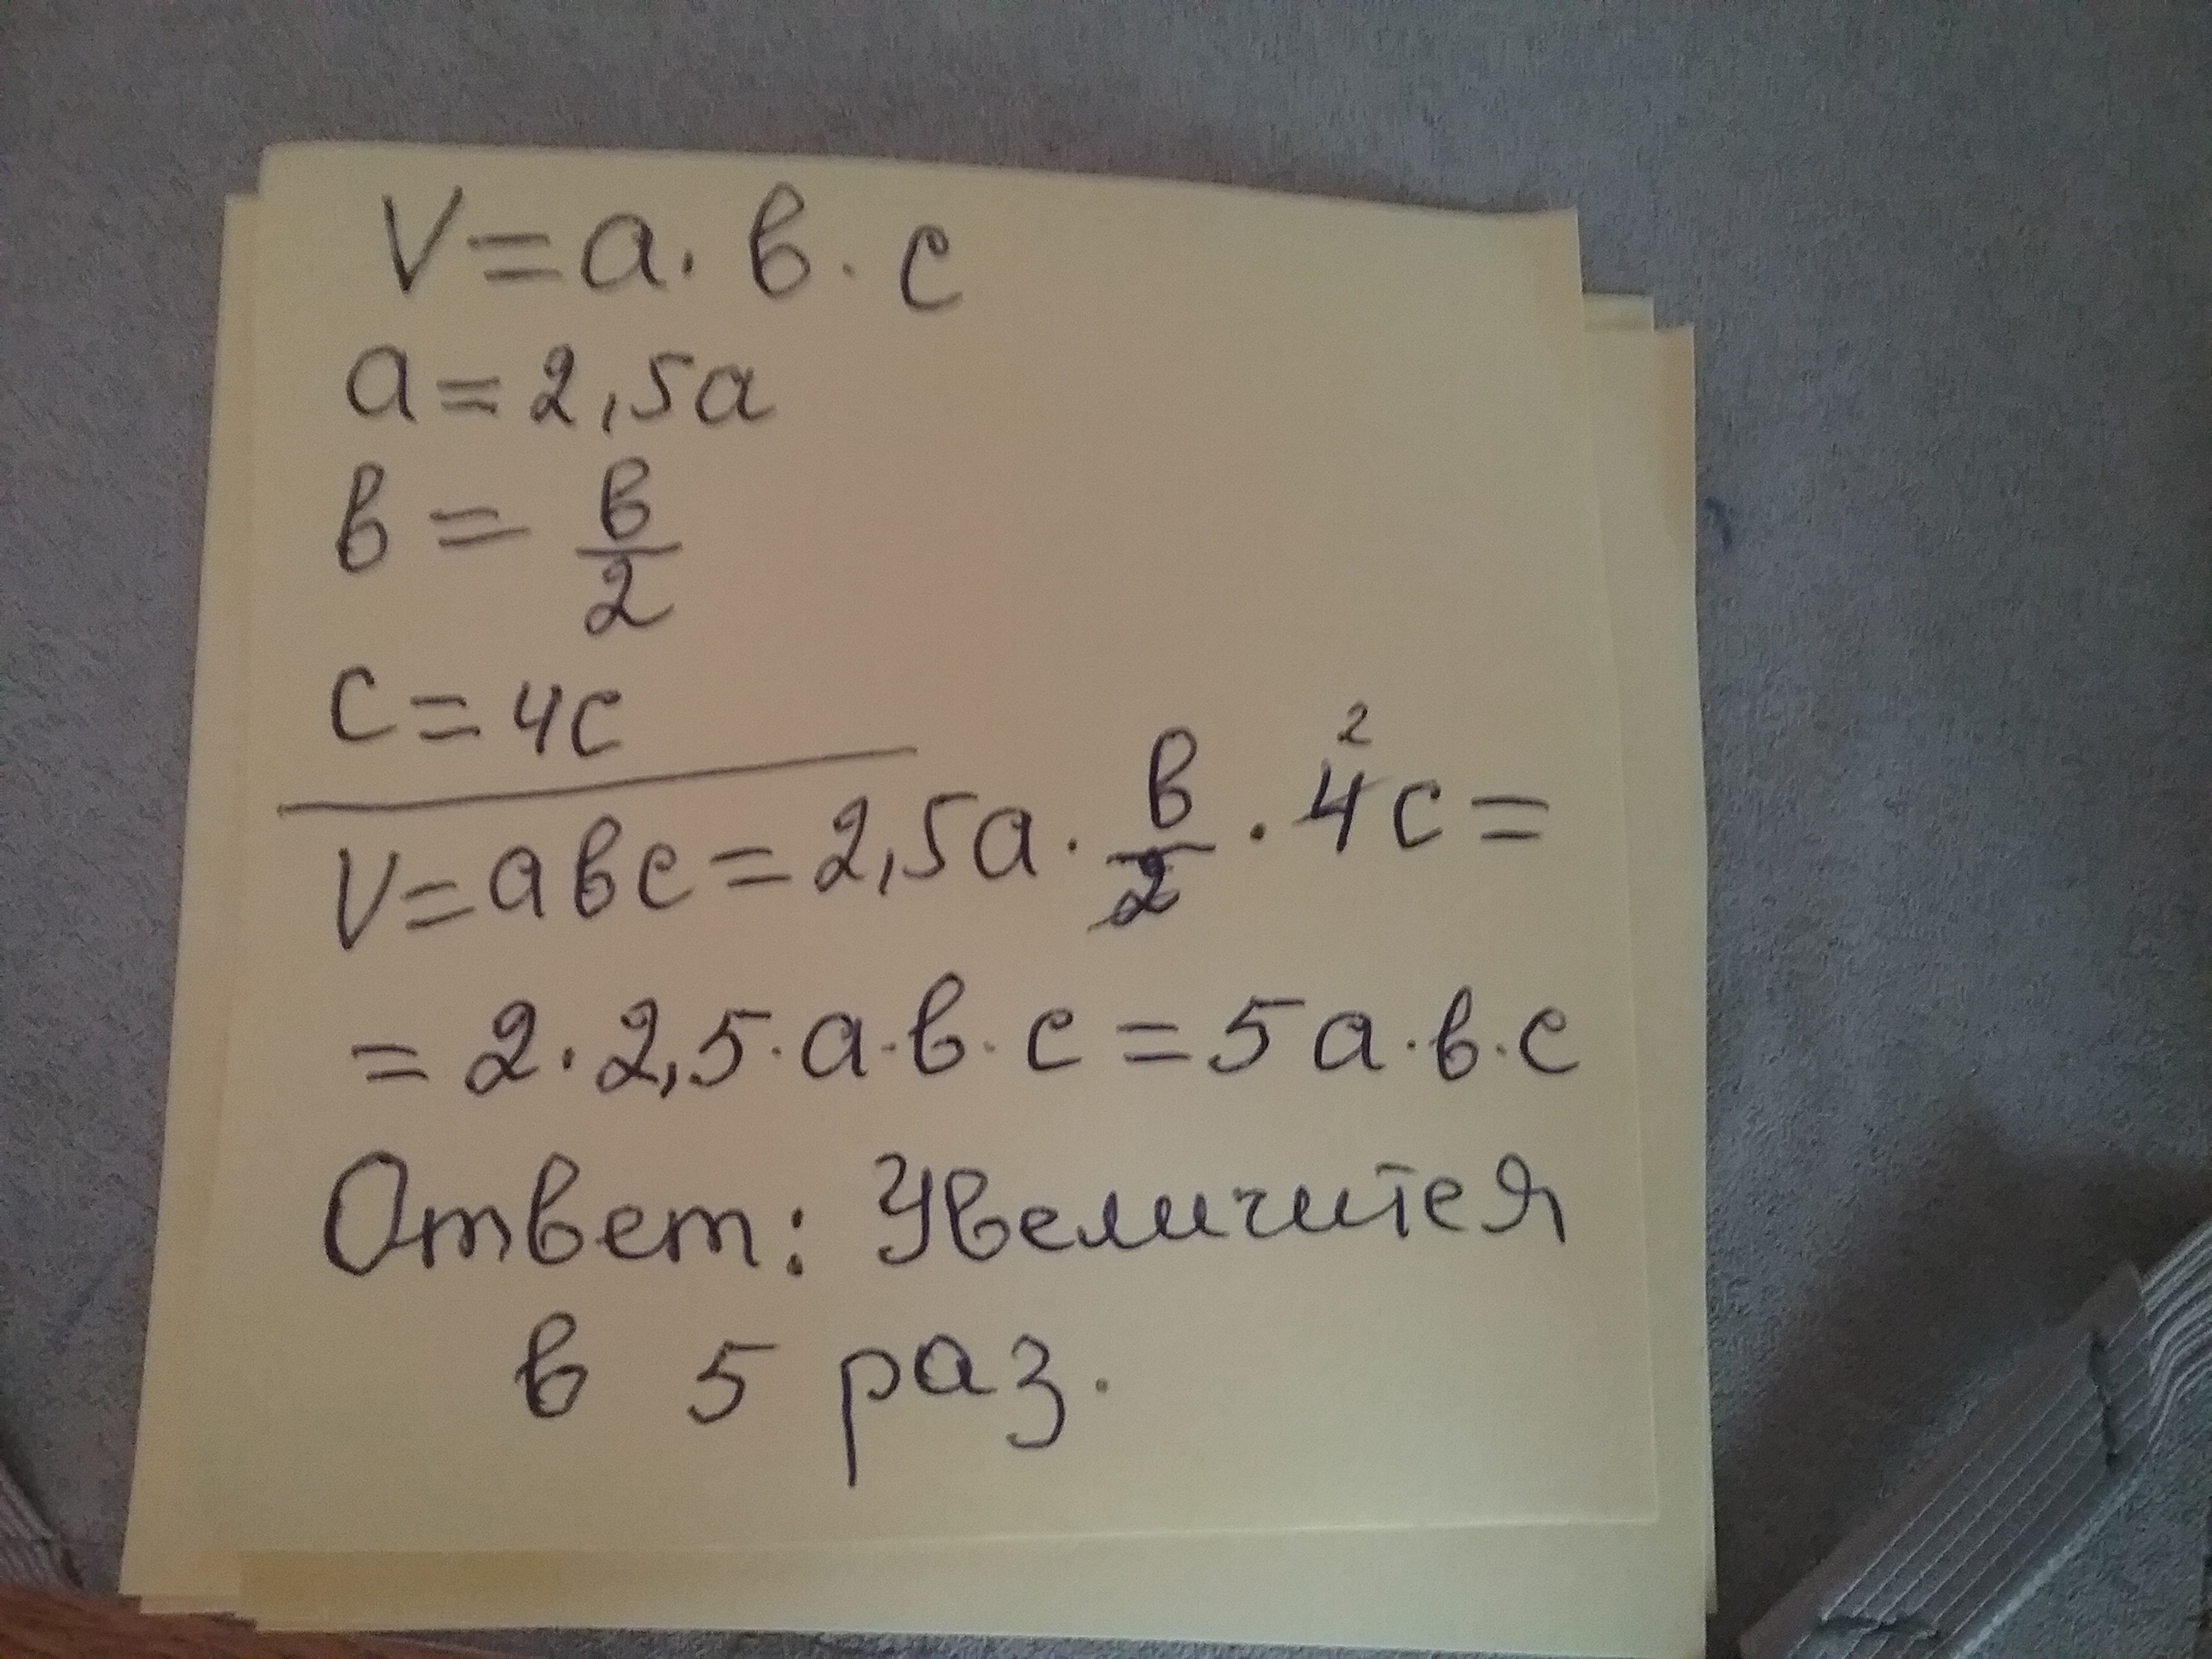 V = a · в · c
a = 2,5a
в = в/2
c = 4c
V = aвc = 2,5a · в/2 · 4 2 c =
= 2 · 2,5 · a · в · c = 5a · в · c
Ответ: Увеличится
в 5 раз.